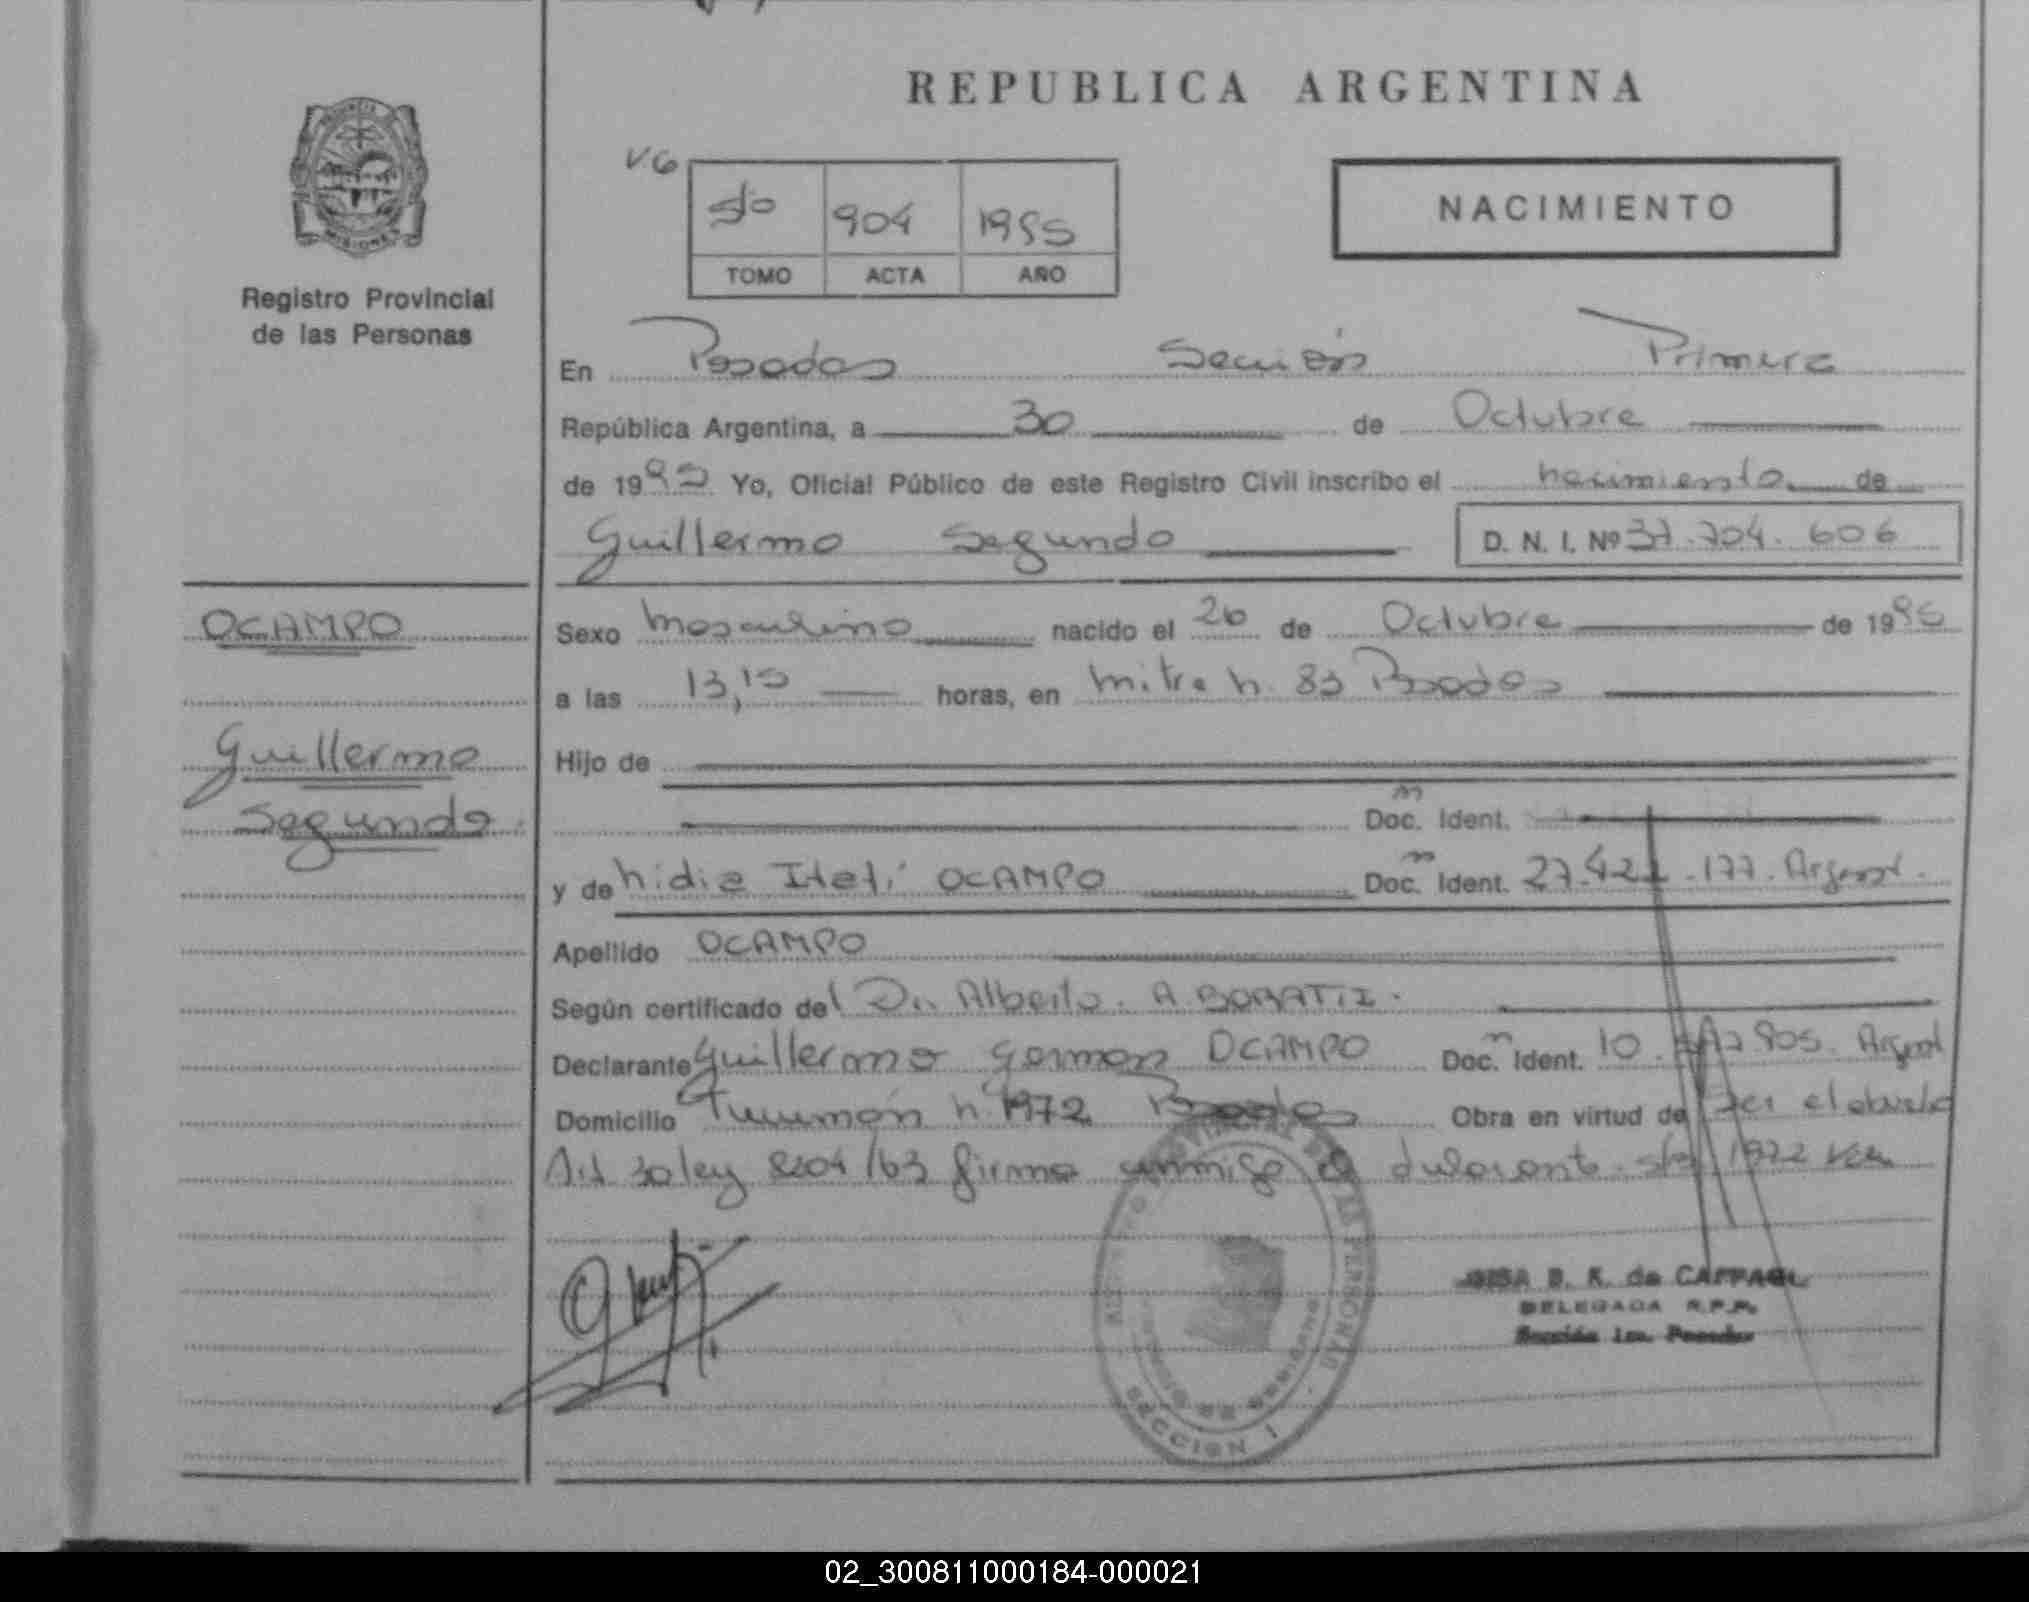 REPUBLICA ARGENTINA
MISIONES
Registro Provincial
de las Personas
V6
5to 904 1995
TOMO ACTA AÑO
NACIMIENTO
En Posadas Sección Primera
República Argentina, a 30 de Octubre
de 1995 Yo, Oficial Público de este Registro Civil inscribo el nacimiento de
Guillermo Segundo D. N. I. Nº 37.704.606
OCAMPO
Sexo Masculino nacido el 26 de Octubre de 1995
a las 13,15 horas, en Mitre n. 83 Posadas
Guillermo
Segundo
Hijo de
Doc. Ident.
y de Nidia Itatí OCAMPO Doc. Ident. 27.421.177. Argent.
Apellido OCAMPO
Según certificado del Dr. Alberto. A.
Declarante Guillermo German OCAMPO Doc. Ident. 10. 905. Argent
Domicilio Tucumán n 1972 Posadas Obra en virtud de ser el abuelo
Art 30 ley 8204/63 firma conmigo el declarante. s/r 1972 Vale
B. K. de
DELEGADA R.P.P.
Sección 1ra. Posadas
REGISTRO PROVINCIAL DE LAS PERSONAS
SECCION 1
02_300811000184-000021